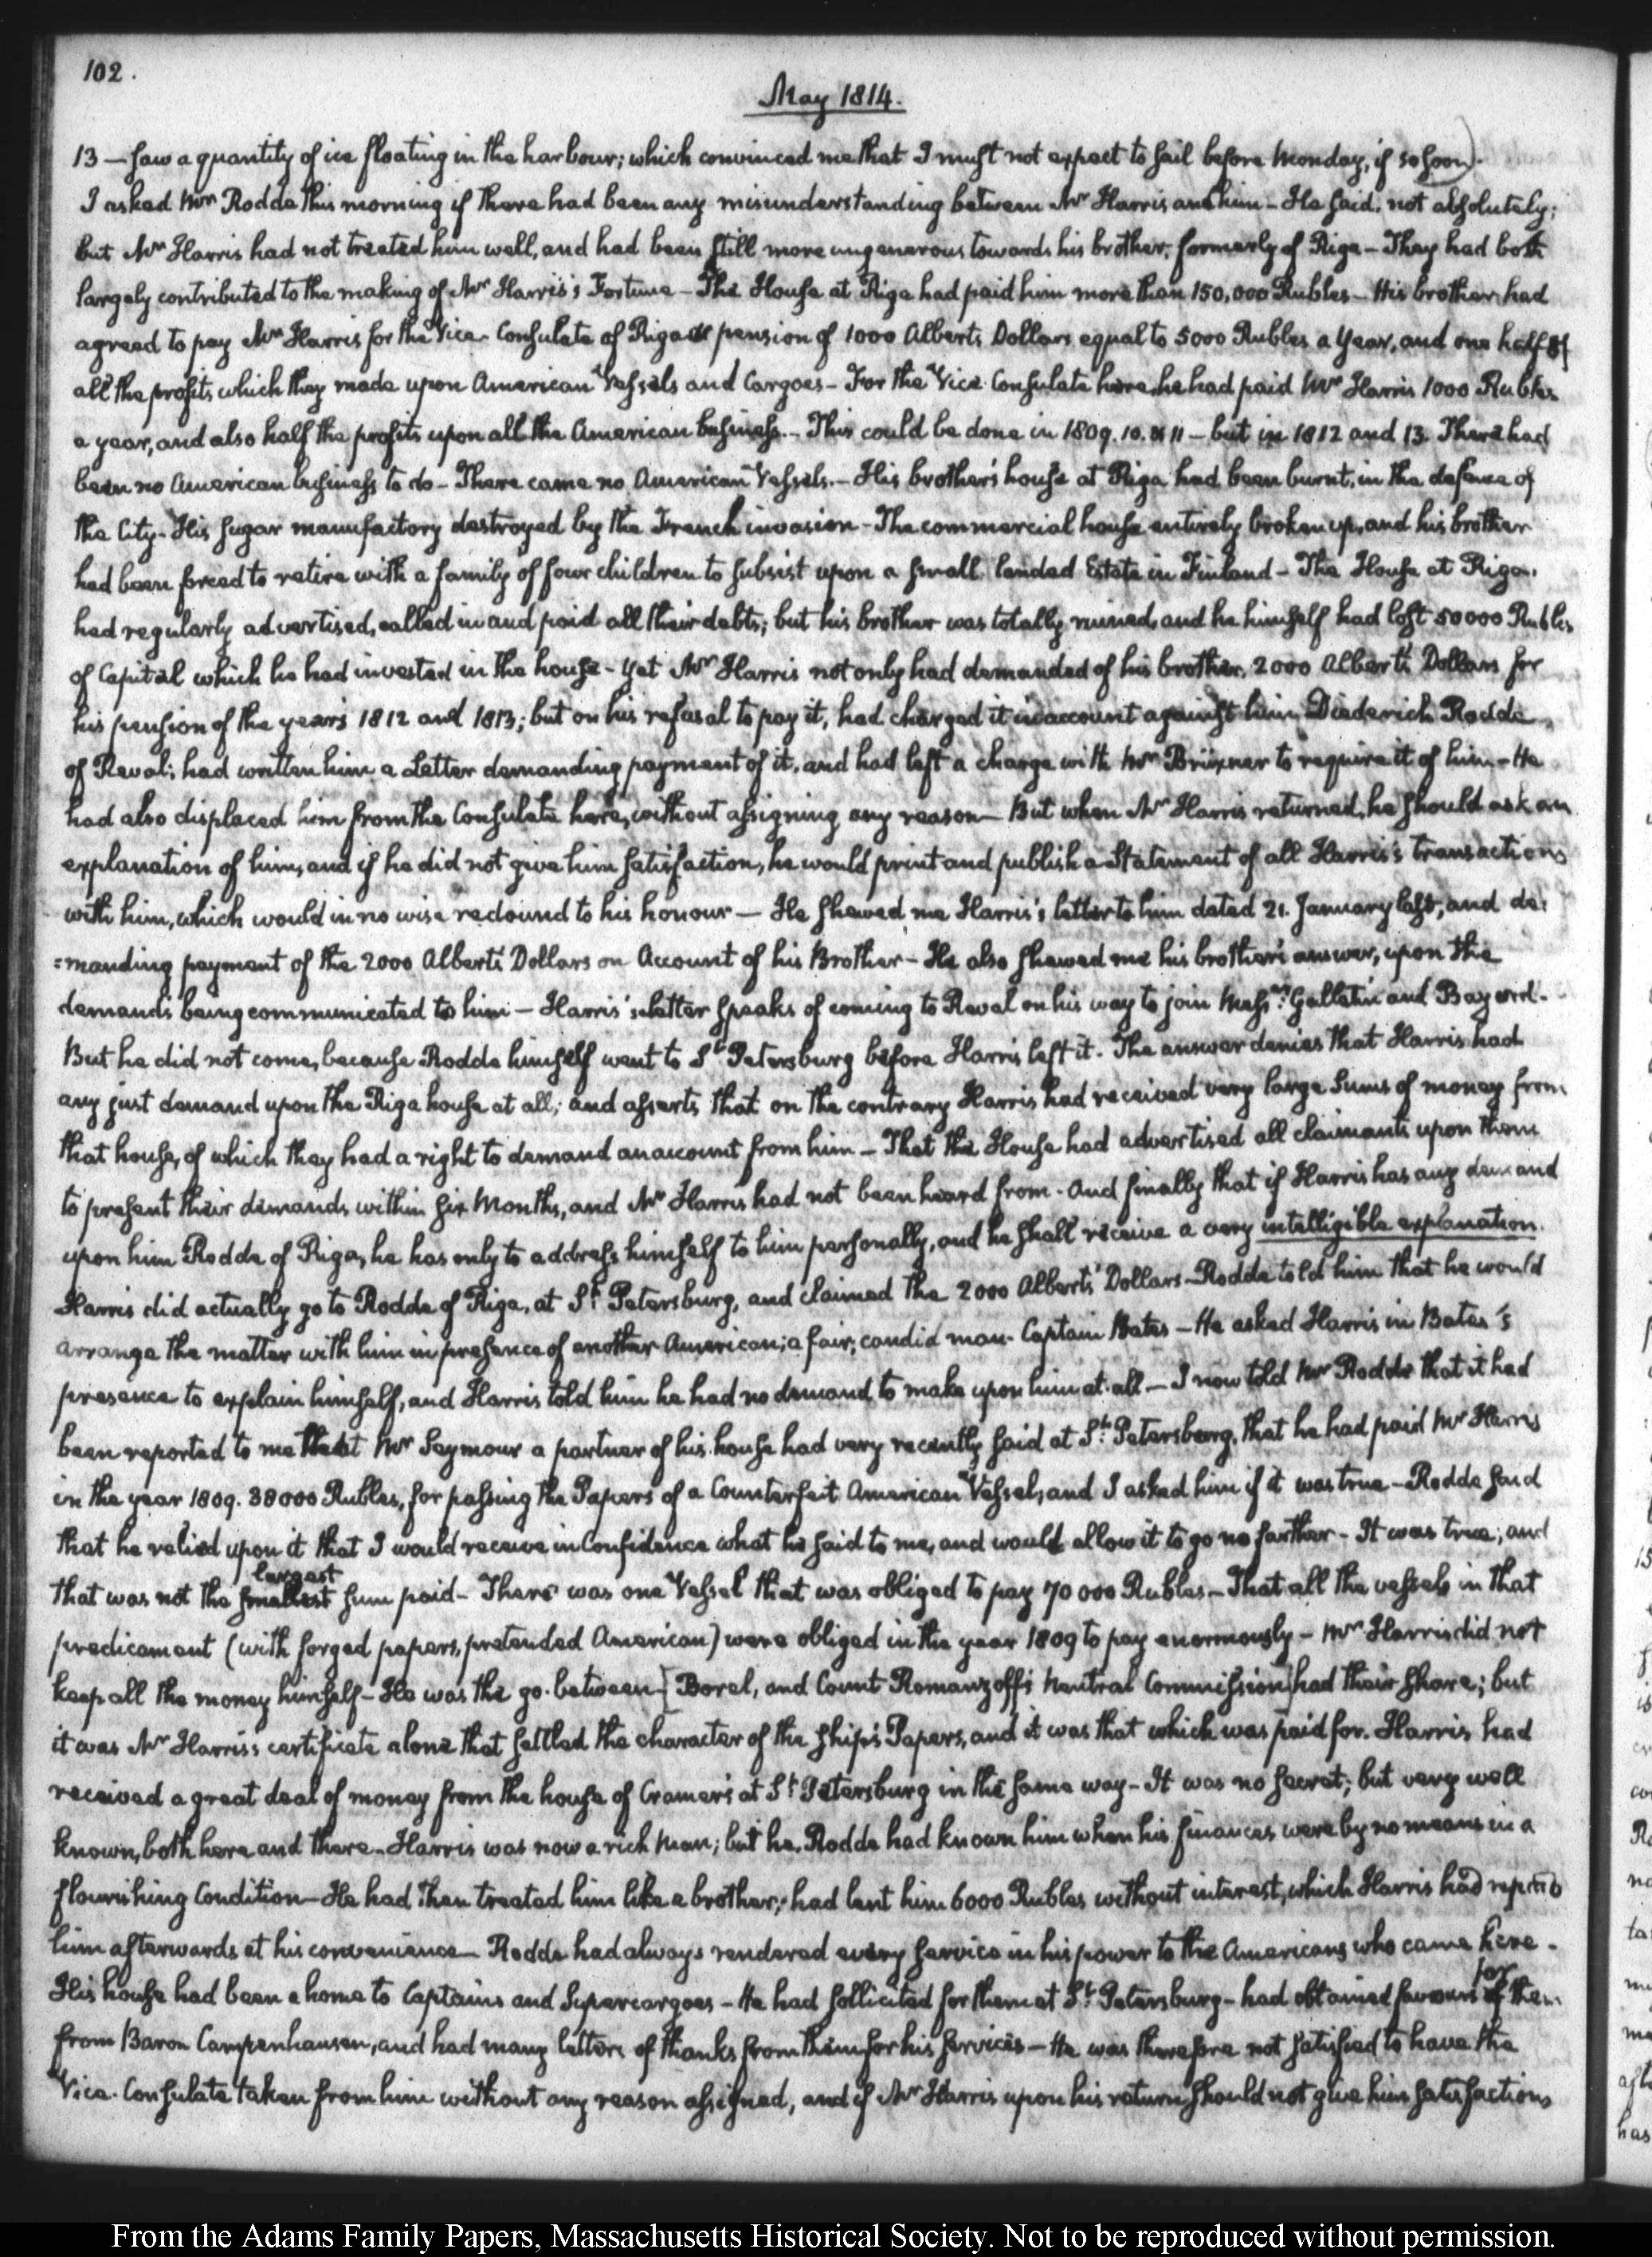 102.
May 1814.
13 — saw a quantity of ice floating in the harbour; which convinced me that I must not expect to sail before Monday, if so soon).
I asked Mr Rodde this morning if there had been any misunderstanding between Mr Harris and him - He said, not absolutely;
but Mr Harris had not treated him well, and had been still more ungenerous towards his brother, formerly of Riga - They had both
largely contributed to the making of Mr Harris's Fortune - The House at Riga had paid him more than 150,000 Rubles - His brother had
agreed to pay Mr Harris for the Vice-Consulate of Riga a pension of 1000 Alberts Dollars equal to 5000 Rubles a year, and one half of
all the profits which they made upon American Vessels and Cargoes - For the Vice Consulate here, he had paid Mr Harris 1000 Rubles
a year, and also half the profits upon all the American business. - This could be done in 1809. 10. & 11 - but in 1812 and 13. There had
been no American business to do - There came no American Vessels. - His brother's house at Riga had been burnt, in the defence of
the City - His sugar manufactory destroyed by the French invasion - The commercial house entirely broken up, and his brother
had been forced to retire with a family of four children to subsist upon a small landed Estate in Finland - The House at Riga,
had regularly advertised, called in and paid all their debts; but his brother was totally ruined, and he himself had lost 50000 Rubles
of Capital which he had invested in the house - yet Mr Harris not only had demanded of his brother, 2000 Alberts Dollars for
his pension of the years 1812 and 1813; but on his refusal to pay it, had charged it in account against him Diederich Rodde,
of Reval; had written him a Letter demanding payment of it, and had left a charge with Mr Brüxner to require it of him - He
had also displaced him from the Consulate here, without assigning any reason - But when Mr Harris returned, he should ask an
explanation of him, and if he did not give him satisfaction, he would print and publish a Statement of all Harris's transactions
with him, which would in no wise redound to his honour — He shewed me Harris's letter to him dated 21. January last, and de:
=manding payment of the 2000 Alberts Dollars on Account of his Brother - He also shewed me his brother's answer, upon the
demand's being communicated to him - Harris's letter speaks of coming to Reval on his way to join Messrs: Gallatin and Bayard -
But he did not come, because Rodde himself went to St Petersburg before Harris left it. The answer denies that Harris had
any just demand upon the Riga house at all; and asserts that on the contrary Harris had received very large Sums of money from
that house, of which they had a right to demand an account from him - That the House had advertised all claimants upon them
to present their demands within six Months, and Mr Harris had not been heard from - And finally that if Harris has any demand
upon him Rodde of Riga, he has only to address himself to him personally, and he shall receive a very intelligible explanation.
Harris did actually go to Rodde of Riga, at St Petersburg, and claimed the 2000 Alberts Dollars - Rodde told him that he would
arrange the matter with him in presence of another American; a fair, candid man - Captain Bates - He asked Harris in Bates's
presence to explain himself, and Harris told him he had no demand to make upon him at all - I now told Mr Rodde that it had
been reported to me that Mr Seymour a partner of his house had very recently said at St: Petersburg, that he had paid Mr Harris
in the year 1809. 38000 Rubles, for passing the Papers of a Counterfeit American Vessel, and I asked him if it was true - Rodde said
that he relied upon it that I would receive in Confidence what he said to me, and would allow it to go no farther - It was true; and
that was not the smallest largest sum paid - There was one Vessel that was obliged to pay 70 000 Rubles - That all the vessels in that
predicament (with forged papers, pretended American) were obliged in the year 1809 to pay enormously - Mr Harris did not
keep all the money himself - He was the go-between [Borel, and Count Romanzoff's Neutral Commission] had their share; but
it was Mr Harris's certificate alone that settled the character of the ship's Papers, and it was that which was paid for. Harris had
received a great deal of money from the house of Cramers at St Petersburg in the same way - It was no secret; but very well
known, both here and there - Harris was now a rich man; but he, Rodde had known him when his finances were by no means in a
flourishing Condition - He had then treated him like a brother; had lent him 6000 Rubles without interest, which Harris had repaid
him afterwards at his convenience - Rodde had always rendered every service in his power to the Americans who came here -
His house had been a home to Captains and Supercargoes - He had sollicited for them at St Petersburg - had obtained favours for them
from Baron Campenhausen, and had many letters of thanks from them for his services - He was therefore not satisfied to have the
Vice-Consulate taken from him without any reason assigned, and if Mr Harris upon his return should not give him satisfactions
From the Adams Family Papers, Massachusetts Historical Society. Not to be reproduced without permission.